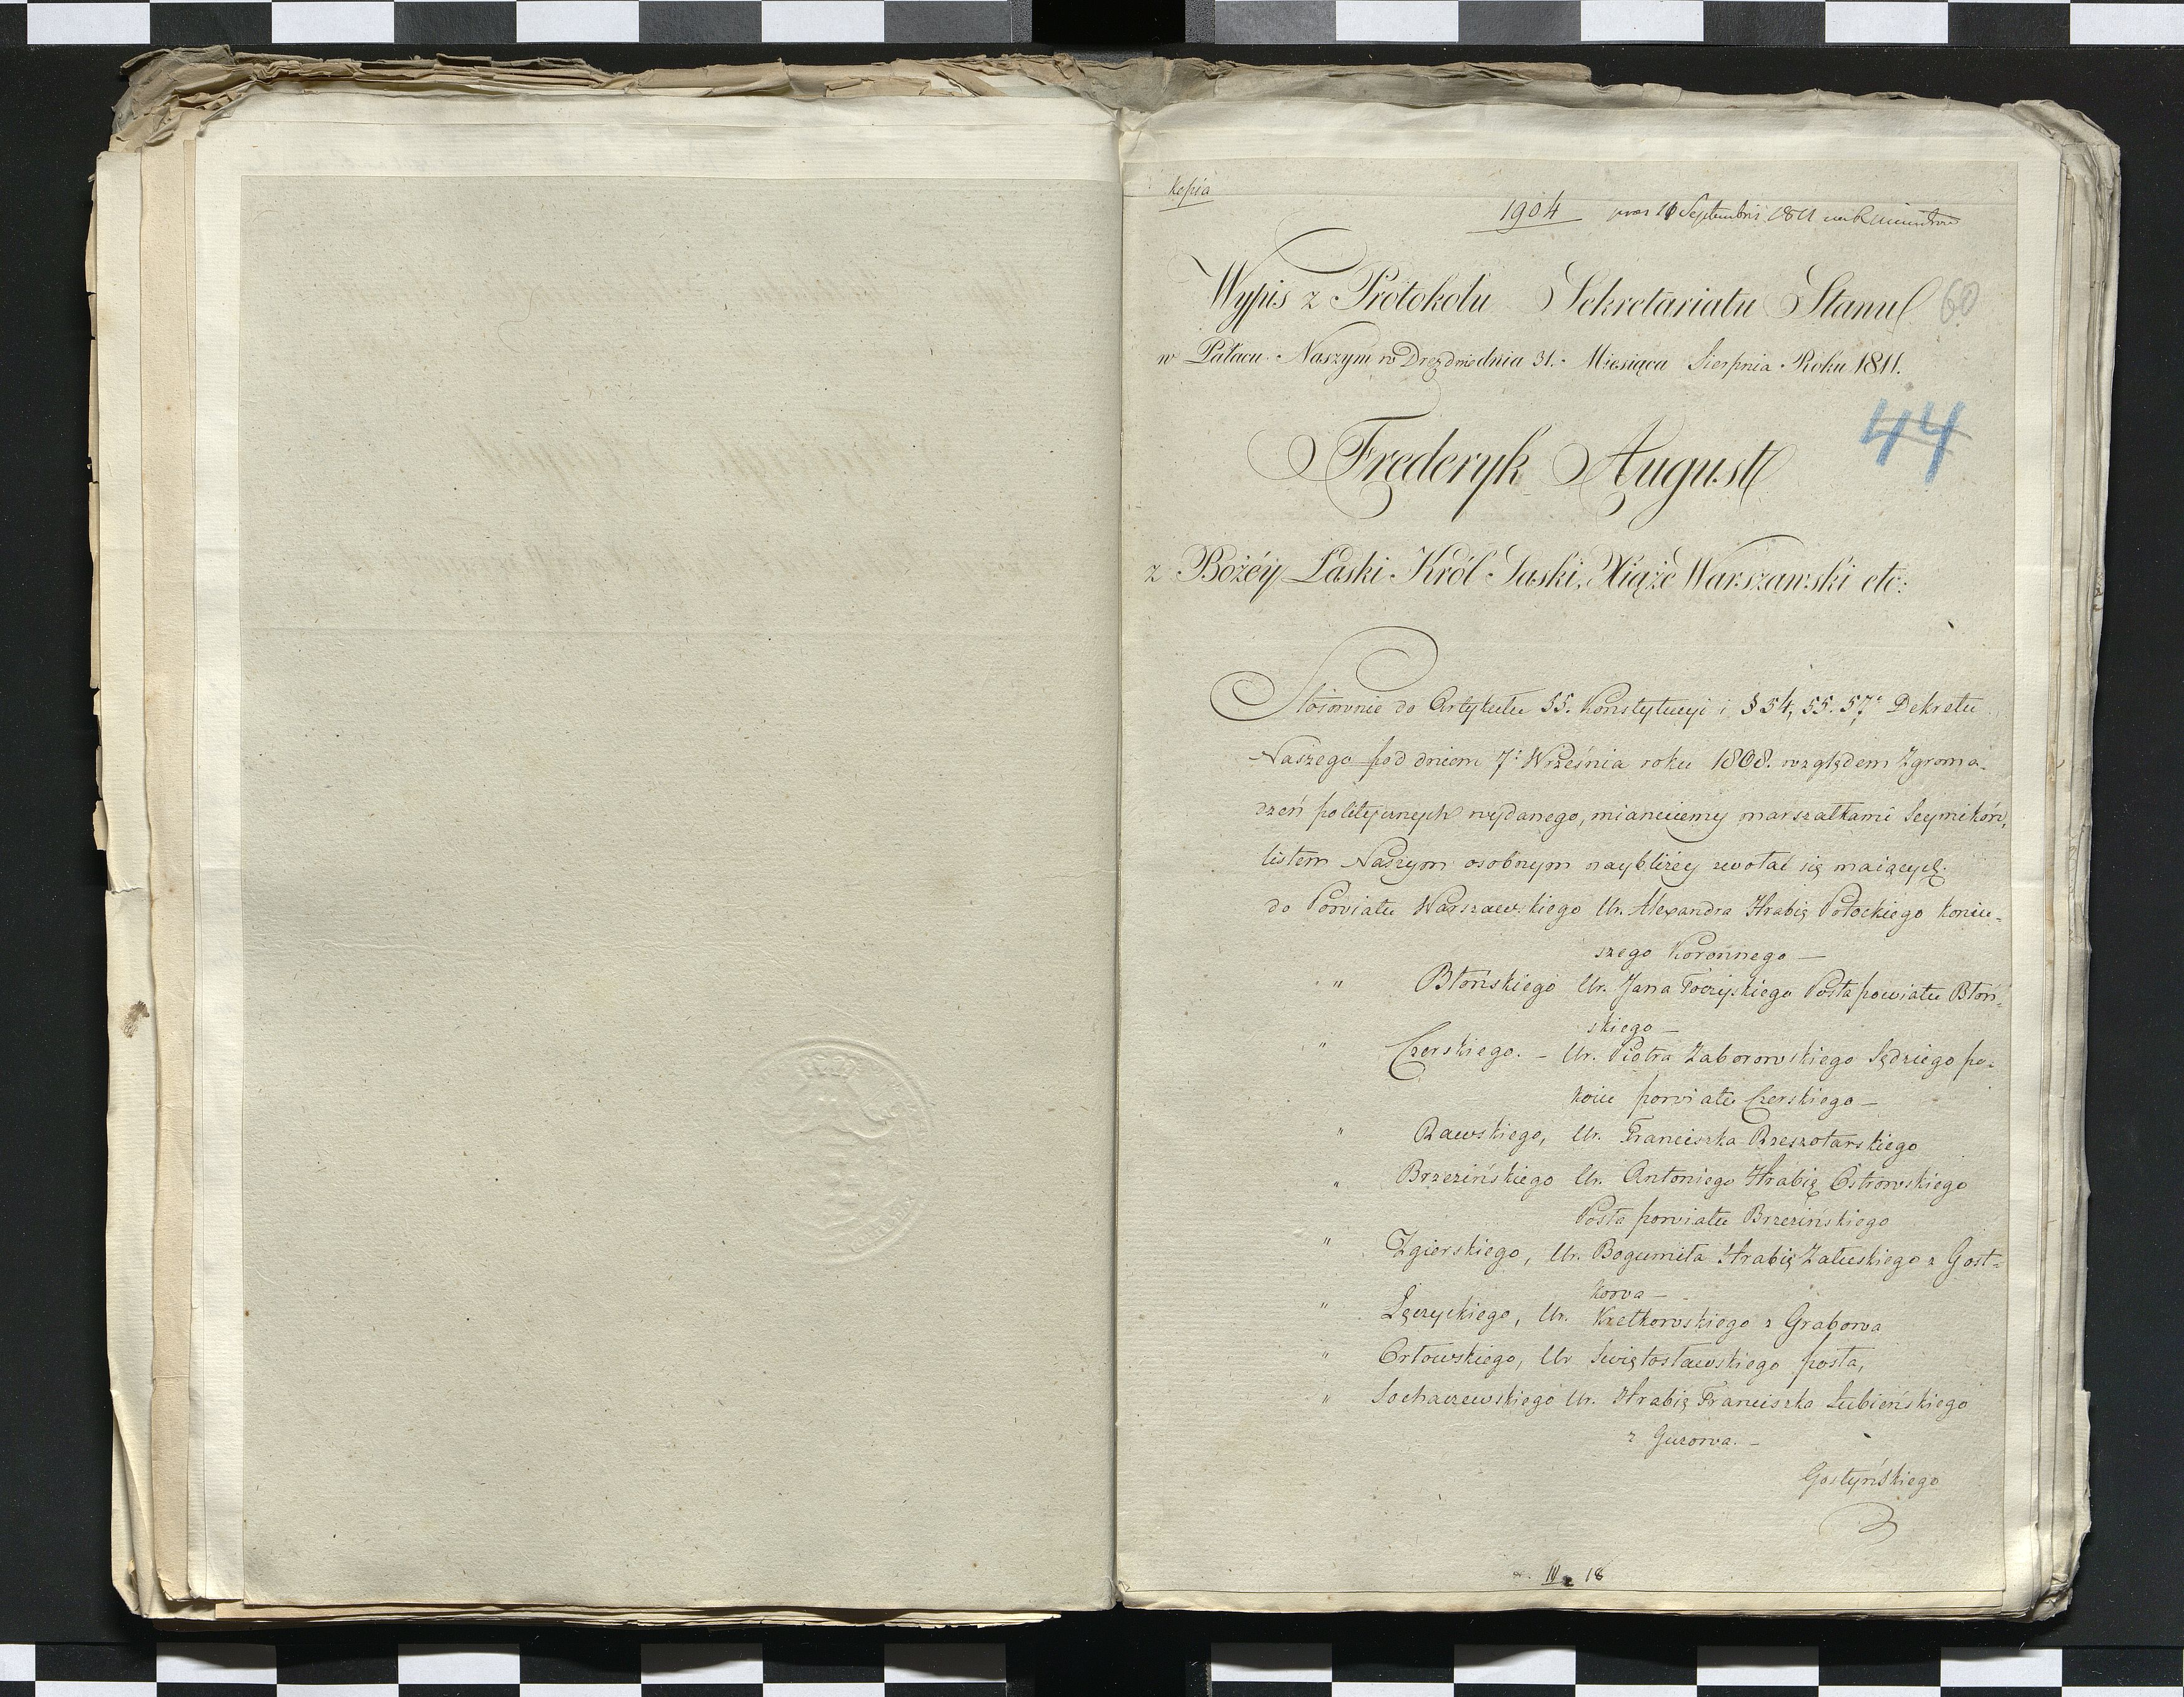 Kopia
1904 praes 11 Septembris 1811
Wypis z Protokołu Sekretariatu Stanu
60
w Pałacu Naszym w Dreznie dnia 31. Miesiąca Sierpnia Roku 1811.
44
Frederyk August
z Bożéy Łaski Król Saski, Xiąże Warszawski etc:
Stosownie do Artykułu 55. Konstytucyi i § 54, 55. 57. Dekretu
Naszego pod dniem 7. Września roku 1808. względem Zgroma-
dzeń politycznych wydanego, mianuiemy marszałkami Seymików,
listem Naszym osobnym naybliżey zwołać się maiących.
do Powiatu Warszawskiego Ur. Alexandra Hrabię Potockiego Koniu-
szego Koronnego —
" Błońskiego Ur. Jana Toczyskiego Posła powiatu Błoń-
skiego —
" Czerskiego. — Ur. Piotra Zaborowskiego Sędziego po-
koiu powiatu Czerskiego —
" Rawskiego, Ur. Franciszka Rzeszotarskiego
" Brzezińskiego Ur. Antoniego Hrabię Ostrowskiego
Posła powiatu Brzezińskiego
" Zgierskiego, Ur. Bogumiła Hrabię Załuskiego z Gost-
kowa —
" Łęczyckiego, Ur. Kretkowskiego z Grabowa
" Orłowskiego, Ur Swiętosławskiego posła,
" Sochaczewskiego Ur. Hrabię Franciszka Łubieńskiego
z Guzowa. —
Gostyńskiego
IV 18